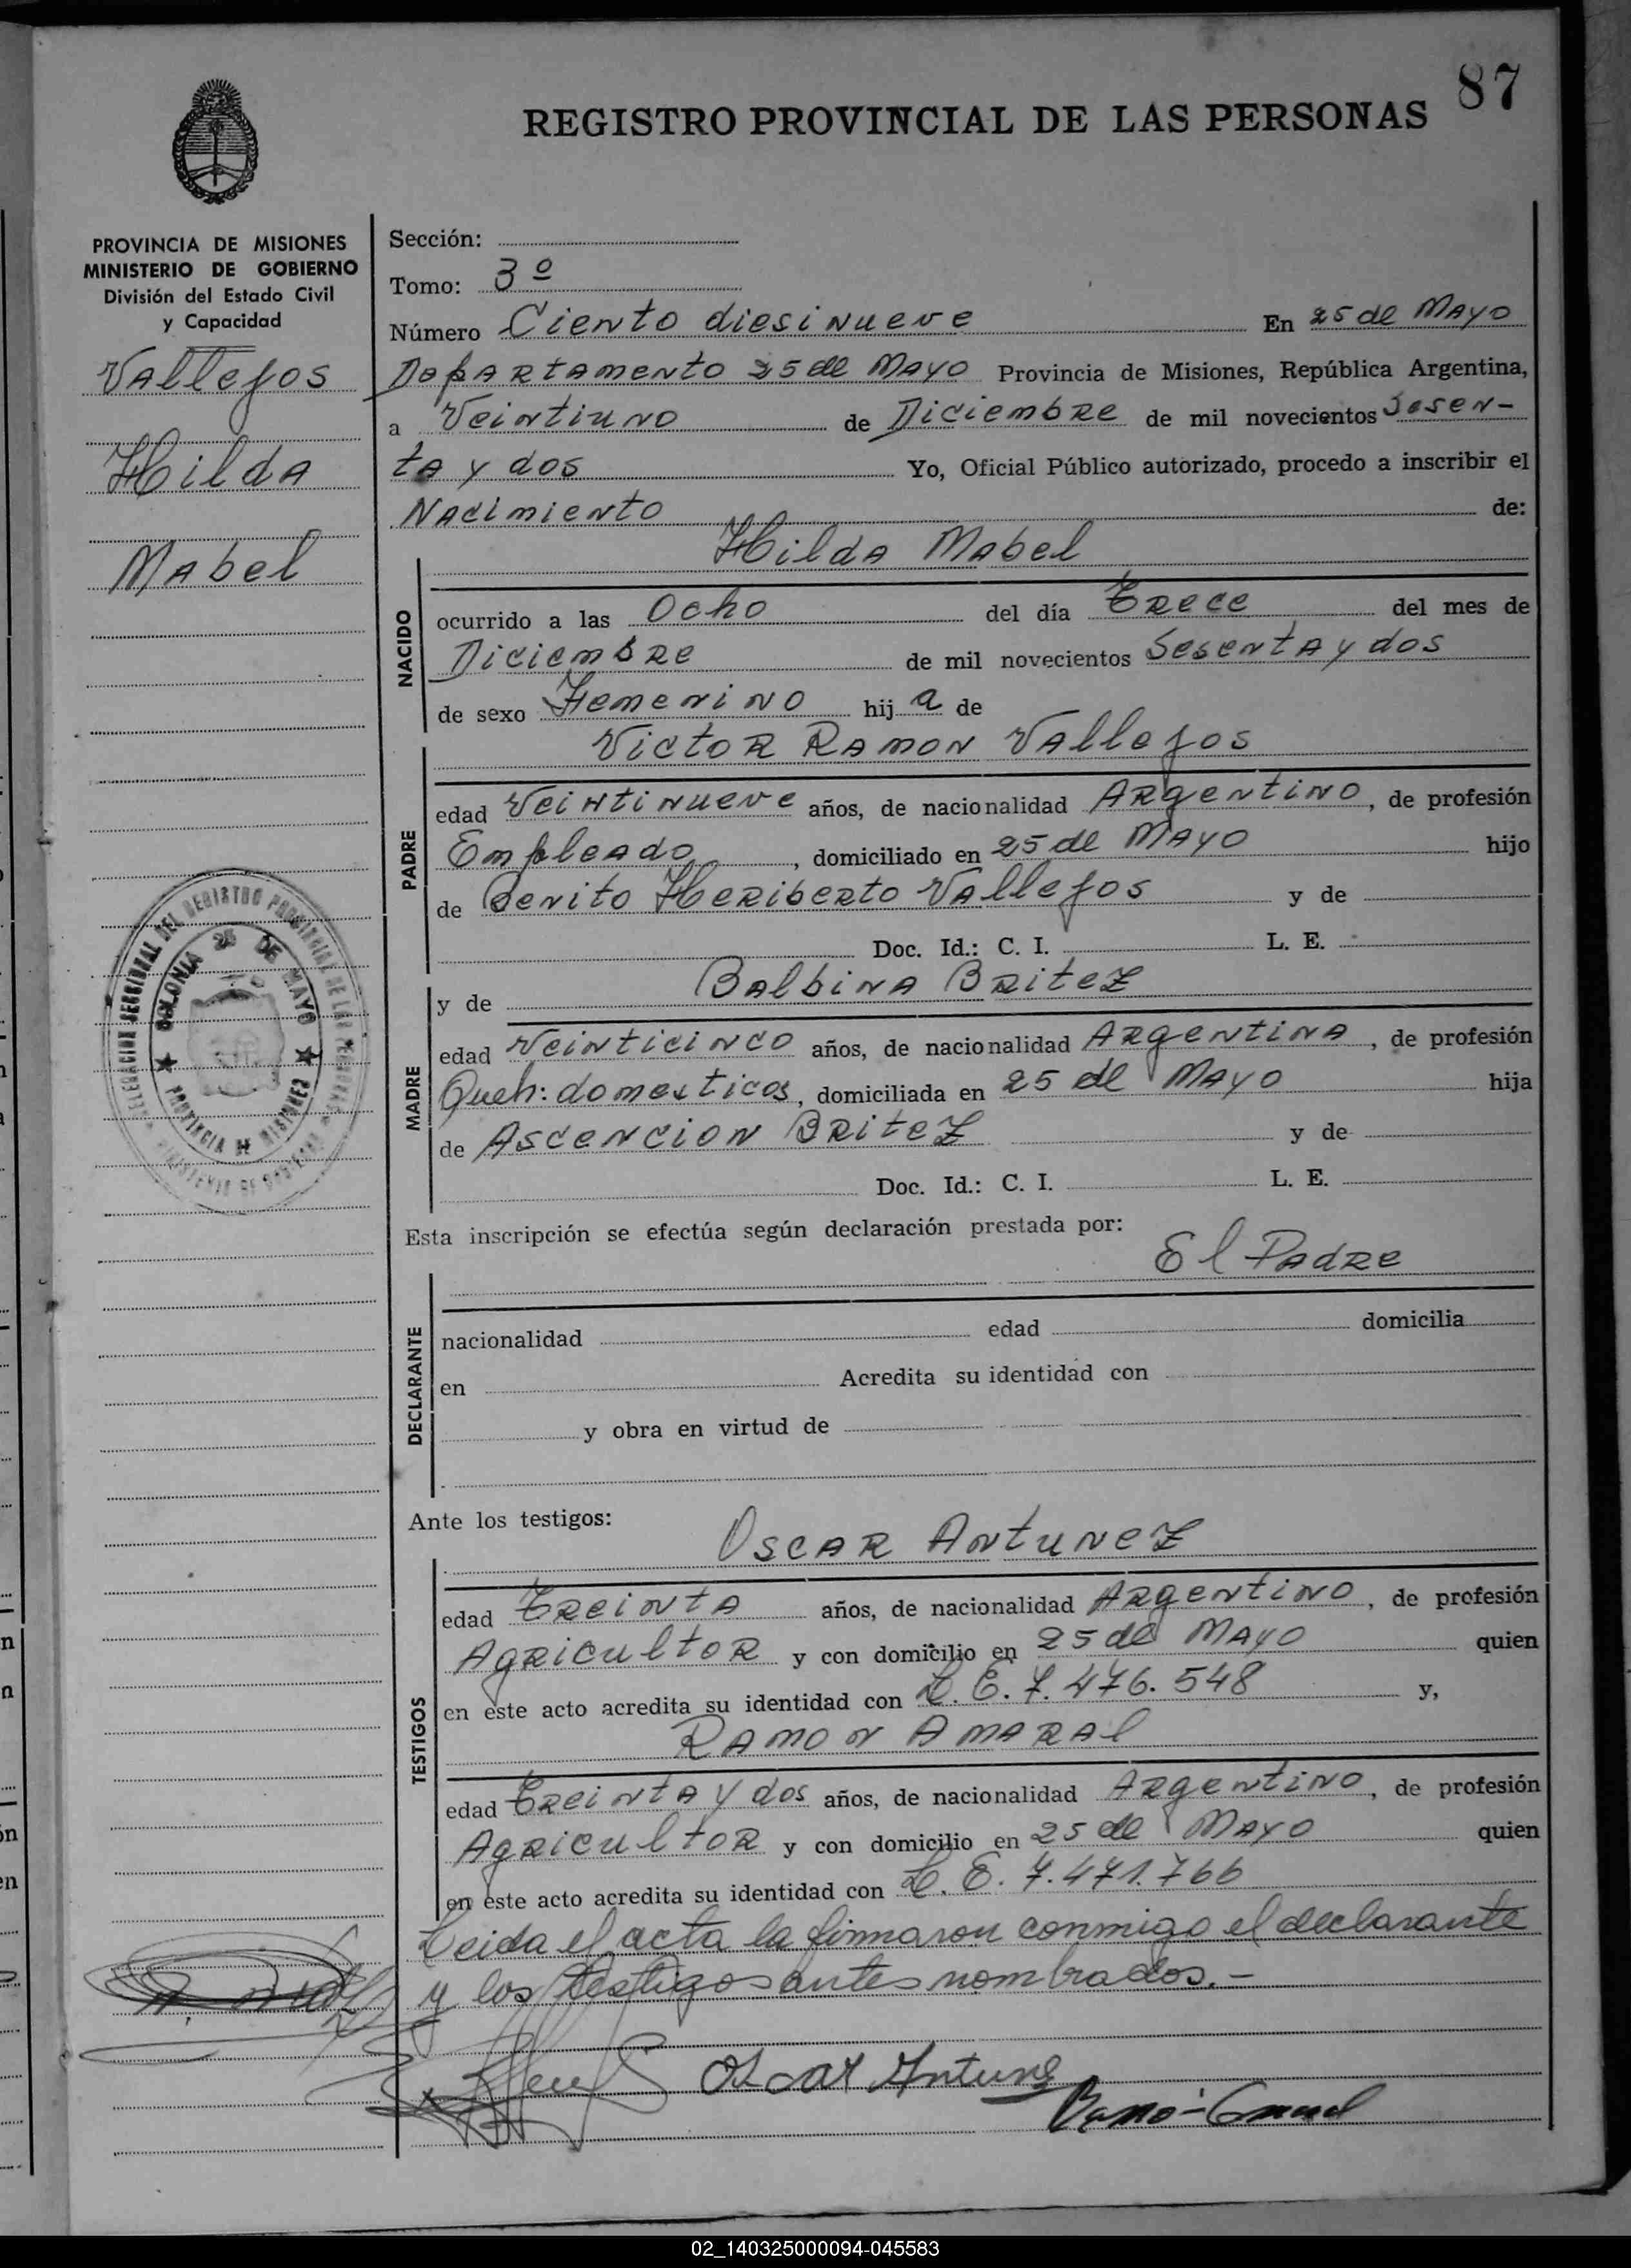 87
REGISTRO PROVINCIAL DE LAS PERSONAS
PROVINCIA DE MISIONES
MINISTERIO DE GOBIERNO
División del Estado Civil
y Capacidad
Vallejos
Hilda
Mabel
COLONIA 25 DE MAYO
PROVINCIA DE MISIONES
Sección:
Tomo: 3º
Número Ciento diesinueve En 25 de Mayo
Departamento 25 de Mayo Provincia de Misiones, República Argentina,
a Veintiuno de Diciembre de mil novecientos Sesen-
ta y dos Yo, Oficial Público autorizado, procedo a inscribir el
Nacimiento de:
Hilda Mabel
NACIDO
ocurrido a las Ocho del día Trece del mes de
Diciembre de mil novecientos Sesenta y dos
de sexo Femenino hija de
Victor Ramon Vallejos
PADRE
edad Veintinueve años, de nacionalidad Argentino, de profesión
Empleado, domiciliado en 25 de Mayo hijo
de Benito Heriberto Vallejos y de
Doc. Id.: C. I. L. E.
y de Balbina Britez
MADRE
edad Veinticinco años, de nacionalidad Argentina, de profesión
Queh: domesticos, domiciliada en 25 de Mayo hija
de Ascencion Britez y de
Doc. Id.: C. I. L. E.
Esta inscripción se efectúa según declaración prestada por:
El Padre
DECLARANTE
nacionalidad edad domicilia
en Acredita su identidad con
y obra en virtud de
Ante los testigos:
Oscar Antunez
TESTIGOS
edad Treinta años, de nacionalidad Argentino, de profesión
Agricultor y con domicilio en 25 de Mayo quien
en este acto acredita su identidad con L. E. 7.476.548 y,
Ramon Amaral
edad Treinta y dos años, de nacionalidad Argentino, de profesión
Agricultor y con domicilio en 25 de Mayo quien
en este acto acredita su identidad con L. E. 7.471.766
Leida el acta la firmaron conmigo el declarante
y los testigos antes nombrados.-
Oscar Antunez
02_140325000094-045583